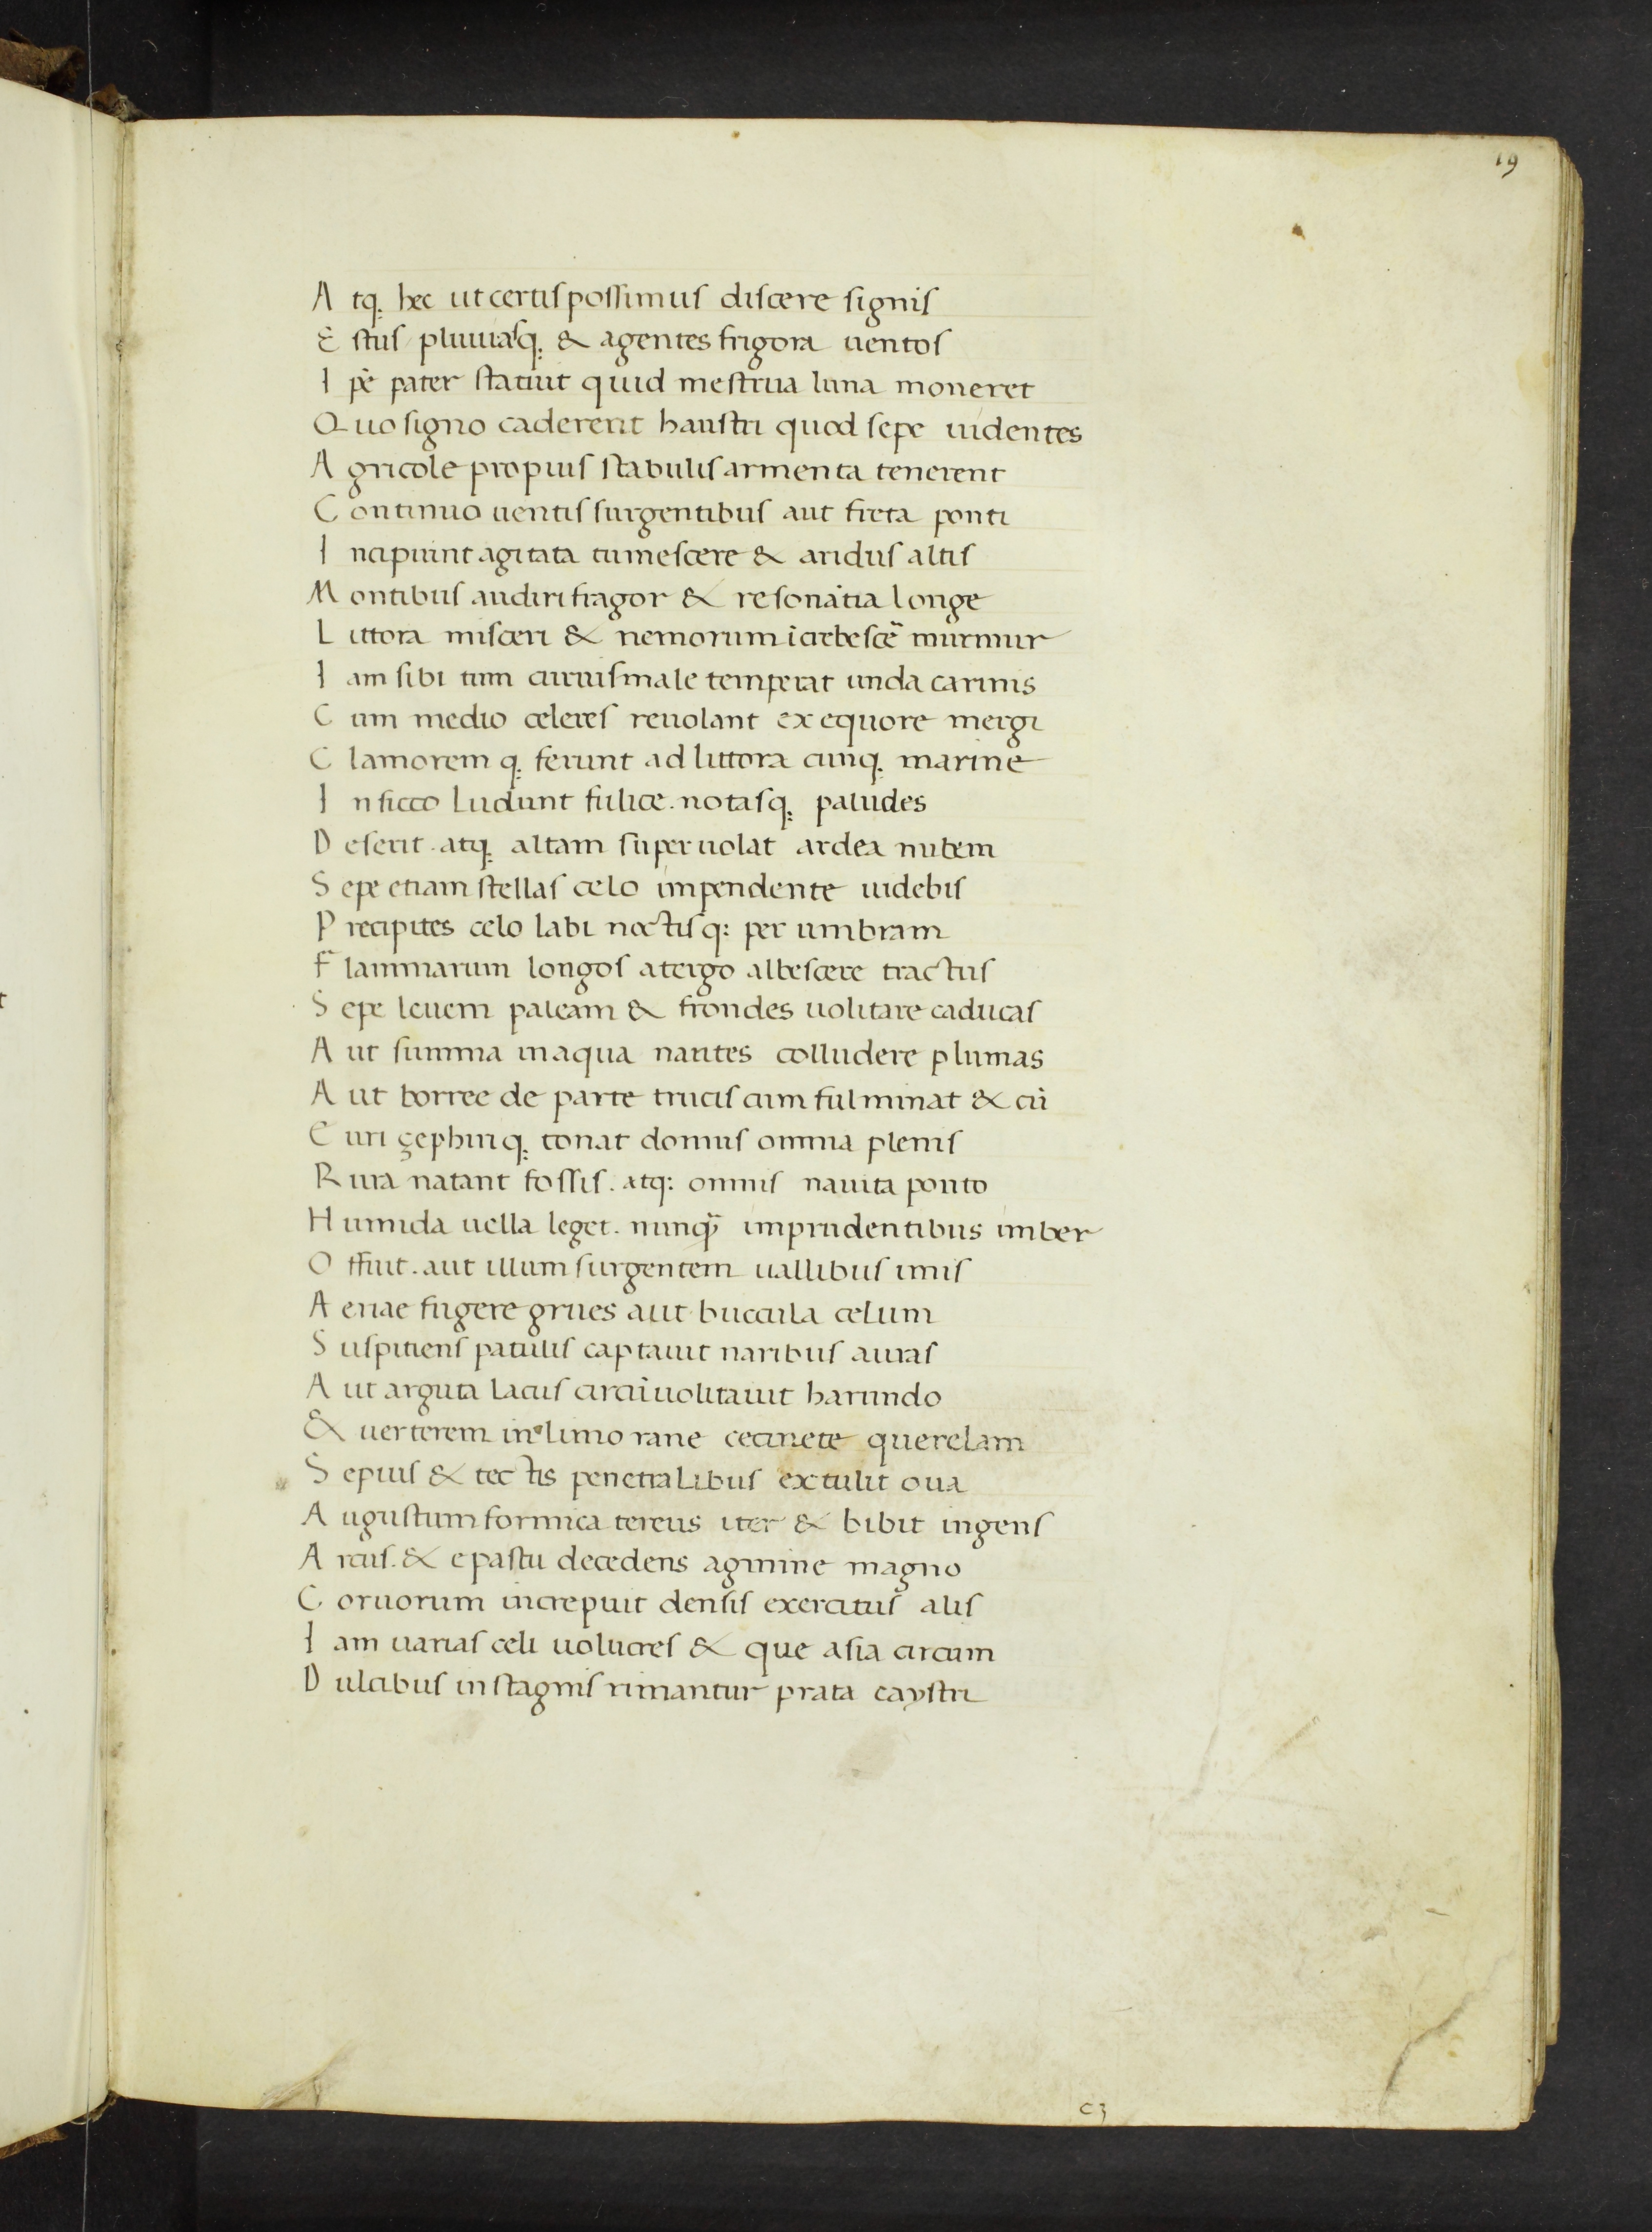 19
Atq; hec ut certis possimus discere signis
Estus pluuiasq; & agentes frigora uentos
Ip̄e pater statuit quid mestrua luna moneret
Quo signo caderent haustri quod sepe uidentes
Agricole propius stabulis armenta tenerent
Continuo uentis surgentibus aut freta ponti
Incipiunt agitata tumescere & aridus altis
Montibus audiri fragor & resonātia longe
Littora misceri & nemorum īcrebescē murmur
Iam sibi tum curuis male temperat unda carinis
Cum medio celeres reuolant ex equore mergi
Clamoremq; ferunt ad littora cunq; marine
In sicco ludunt fulice. notasq; paludes
Deserit. atq; altam super uolat ardea nubem
Sepe etiam stellas celo impendente uidebis
Precipites celo labi noctisq: per umbram
Flammarum longos a tergo albescere tractus
Sepe leuem paleam & frondes uolitare caducas
Aut summa in aqua nantes colludere plumas
Aut borree de parte trucis cum fulminat & cū
Euri çephiriq; tonat domus omnia plenis
Rura natant fossis. atq: omnis nauita ponto
Humida uella leget. nunq̄ imprudentibus imber
Offuit. aut illum surgentem uallibus imis
Aeriae fugere grues aut buccula celum
Suspitiens patulis captauit naribus auras
Aut arguta lacus circūuolitauit harundo
& uerterem in limo rane cecinete querelam
Sepius & tectis penetralibus extulit oua
Augustum formica tereus iter & bibit ingens
Arcus. & e pastu decedens agmine magno
Coruorum increpuit densis exercitus alis
Iam uarias celi uolucres & que asia circum
Dulcibus in stagnis rimantur prata caystri
c3